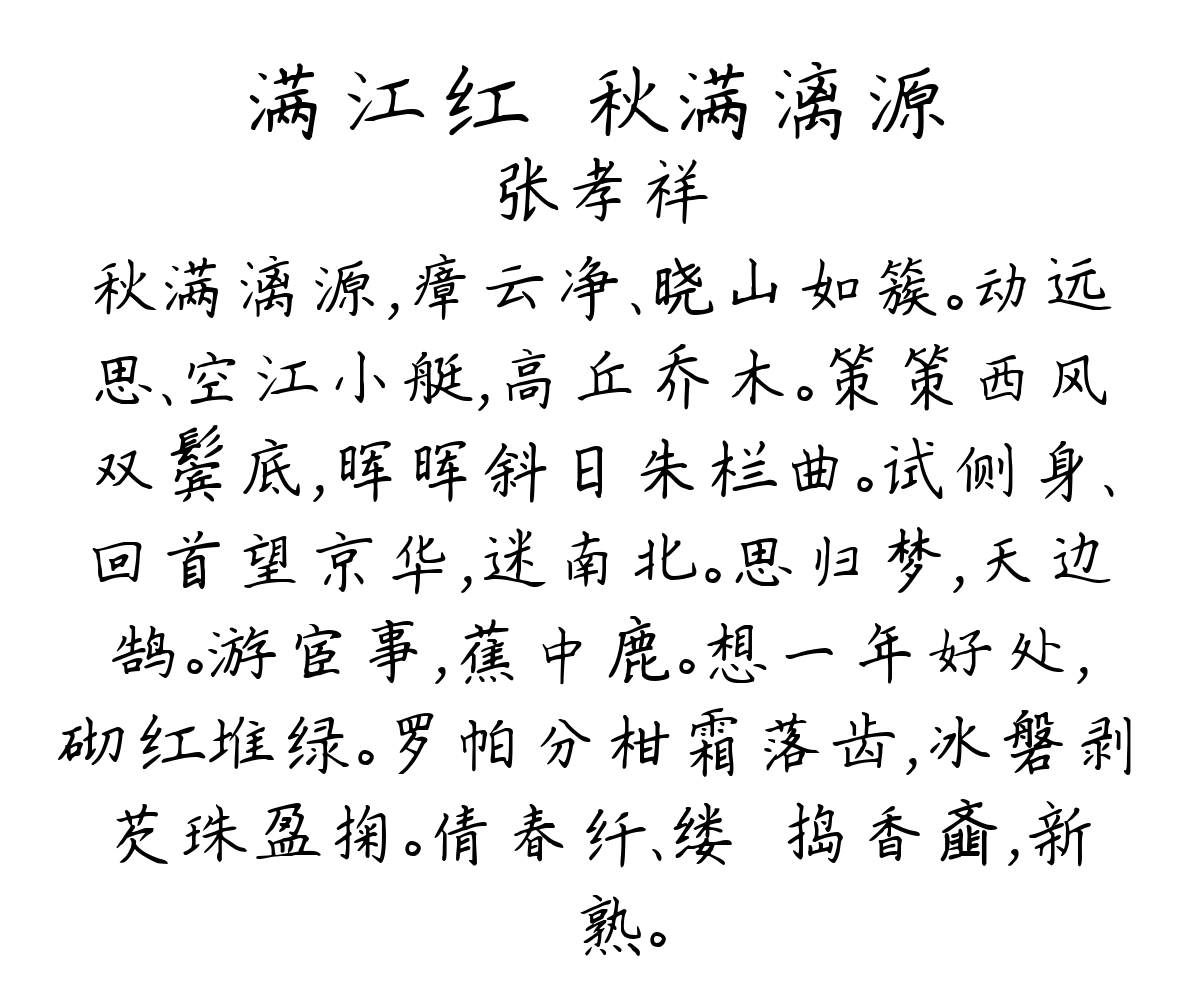 满江红 秋满漓源
张孝祥
秋满漓源,瘴云净、晓山如簇。动远
思、空江小艇,高丘乔木。策策西风
双鬓底,晖晖斜日朱栏曲。试侧身、
回首望京华,迷南北。思归梦,天边
鹄。游宦事,蕉中鹿。想一年好处,
砌红堆绿。罗帕分柑霜落齿,冰磐剥
芡珠盈掬。倩春纤、缕 捣香齑,新
熟。